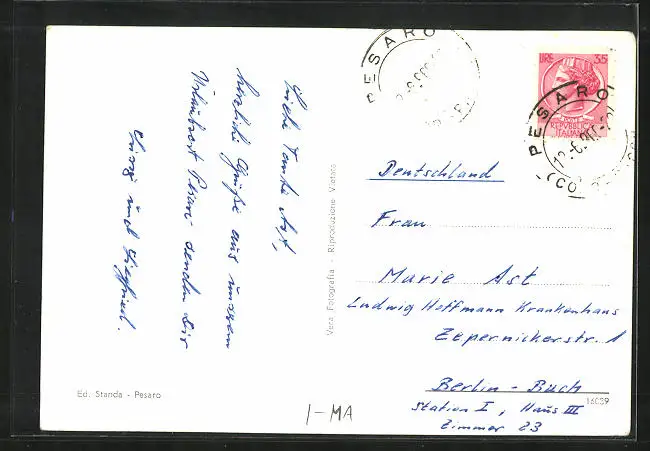 Liebe Tante Ast,
herzliche Grüße aus unserem
Urlaubsort Pesaro senden Dir
und Siegfried.
Vera Fotografia - Riproduzione Vietata
Ed. Standa - Pesaro
I-MA
PESARO
PESARO
LIRE 35
REPUBBLICA
ITALIANA
Deutschland
Frau
Marie Ast
Ludwig Hoffmann Krankenhaus
Zepernickerstr. 1
Berlin - Buch
16039
Station I, Haus III
Zimmer 23